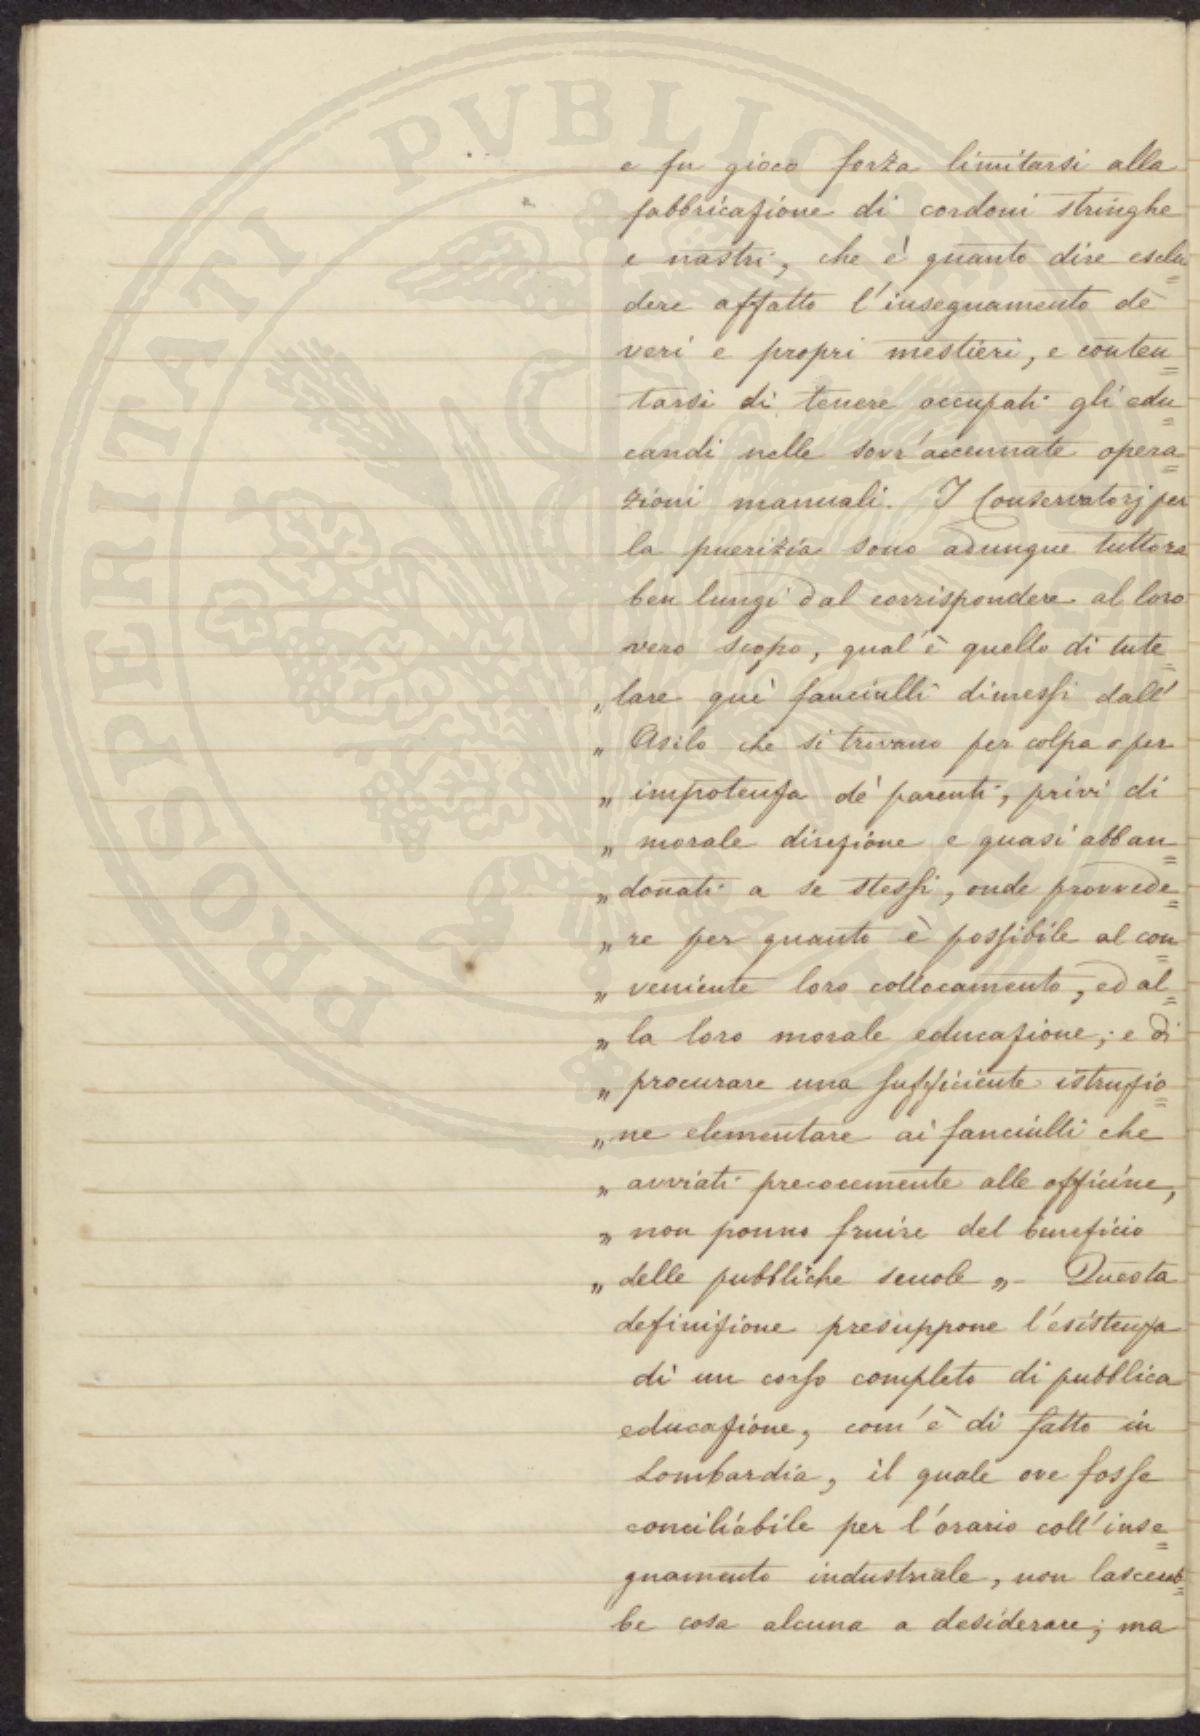 PROSPERITATI PVBLICAE
e fu gioco forza limitarsi alla
fabbricazione di cordoni stringhe
e nastri, che è quanto dire esclu=
dere affatto l'insegnamento de'
veri e propri mestieri, e conten=
tarsi di tenere occupati gli edu=
candi nelle sovr'accennate opera=
zioni manuali. I Conservatorj per
la puerizia sono adunque tuttora
ben lungi dal corrispondere al loro
vero scopo, qual'è quello di tute=
„ lare que' fanciulli dimessi dall'
„ Asilo che si trovano per colpa o per
„ impotenza de' parenti, privi di
„ morale direzione e quasi abban=
„ donati a se stessi, onde provvede=
„ re per quanto è possibile al con=
„ veniente loro collocamento, ed al=
„ la loro morale educazione; e di
„ procurare una sufficiente istruzio=
„ ne elementare ai fanciulli che
„ avviati precocemente alle officine,
„ non ponno fruire del beneficio
„ delle pubbliche scuole „ - Questa
definizione presuppone l'esistenza
di un corso completo di pubblica
educazione, com'è di fatto in
Lombardia, il quale ove fosse
conciliabile per l'orario coll'inse=
gnamento industriale, non lascereb=
be cosa alcuna a desiderare; ma